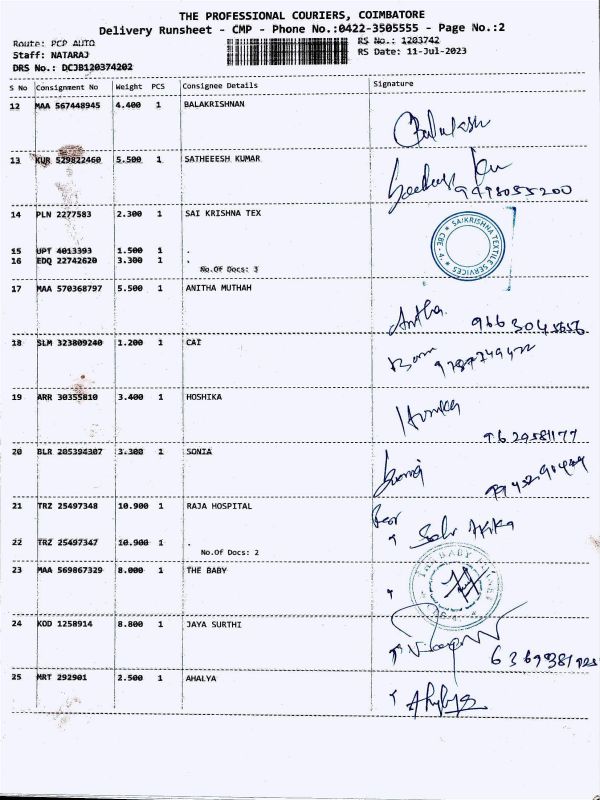 THE PROFESSIONAL COURIERS, COIMBATORE
Delivery Runsheet - CMP - Phone No.:0422-3505555 - Page No.:2
Route: PCP AUTO
RS No.: 1203742
Staff: NATARAJ
RS Date: 11-Jul-2023
DRS No.: DCJB120374202
S No Consignment No Weight PCS Consignee Details Signature
12 MAA 567448945 4.400 1 BALAKRISHNAN
13 KUR 529822460 5.500 1 SATHEEESH KUMAR
14 PLN 2277583 2.300 1 SAI KRISHNA TEX
SAIKRISHNA TEXTILE SERVICES ★ CBE - 4. ★
15 UPT 4013393 1.500 1 .
16 EDQ 22742620 3.300 1 .
No.Of Docs: 3
17 MAA 570368797 5.500 1 ANITHA MUTHAH
Anitha
18 SLM 323809240 1.200 1 CAI
19 ARR 30355810 3.400 1 HOSHIKA
9629581177
20 BLR 205394307 3.300 1 SONIA
21 TRZ 25497348 10.900 1 RAJA HOSPITAL
22 TRZ 25497347 10.900 1 .
No.Of Docs: 2
23 MAA 569867329 8.000 1 THE BABY
THE BABY
24 KOD 1258914 8.800 1 JAYA SURTHI
25 MRT 292901 2.500 1 AHALYA